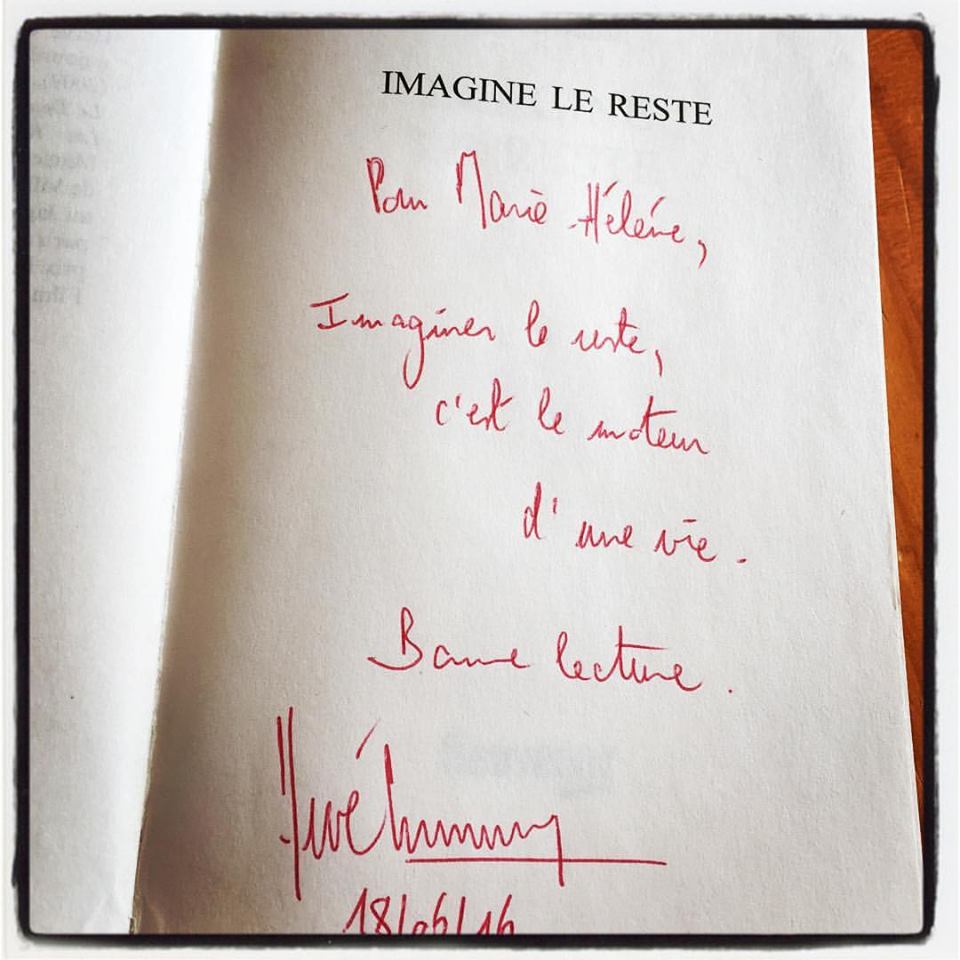 IMAGINE LE RESTE
Pour Marie Hélène,
Imaginer le reste,
c'est le moteur
d'une vie.
Bonne lecture.
Hervé Commère
18/06/16